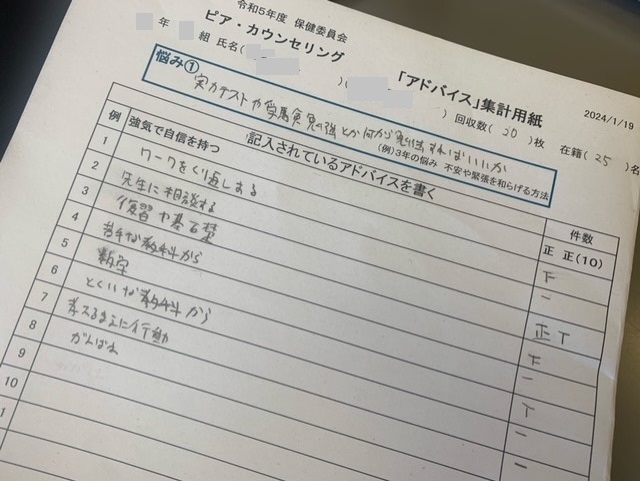 令和5年度 保健委員会
ピア・カウンセリング
「アドバイス」集計用紙
2024/1/19
年 組 氏名( )( ) 回収数( 20 )枚 在籍( 25 )名
悩み①
実力テストや受験勉強とか何から勉強すればいいか
(例)3年の悩み 不安や緊張を和らげる方法
記入されているアドバイスを書く 件数
例 強気で自信を持つ 正 正(10)
1 ワークをくり返しする 下
2 先生に相談する 一
3 復習や基石楚 正 T
4 苦手な教科から 下
5 数学 一
6 とくいな教科から T
7 考えるまえに行動 一
8 がんばれ 一
9
10